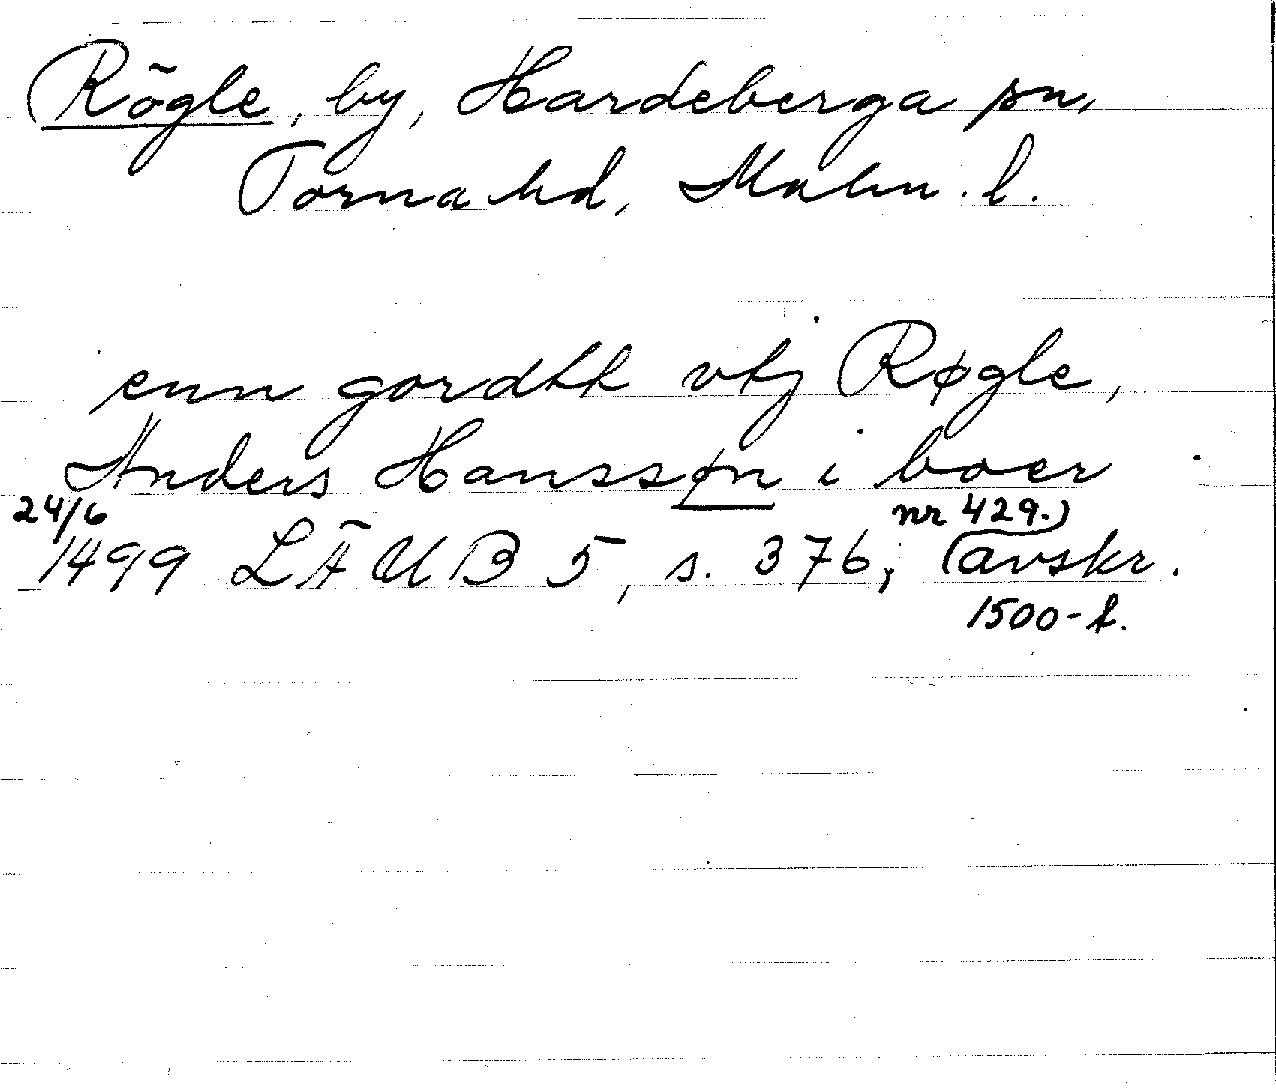 Rögle, by, Hardeberga sn,
Torna hd, Malm. l.
enn gordtt vtj Røgle,
Anders Hanssøn i boer
24/6 1499 LÄUB 5, s. 376, nr 429.
(avskr.
1500-t.)